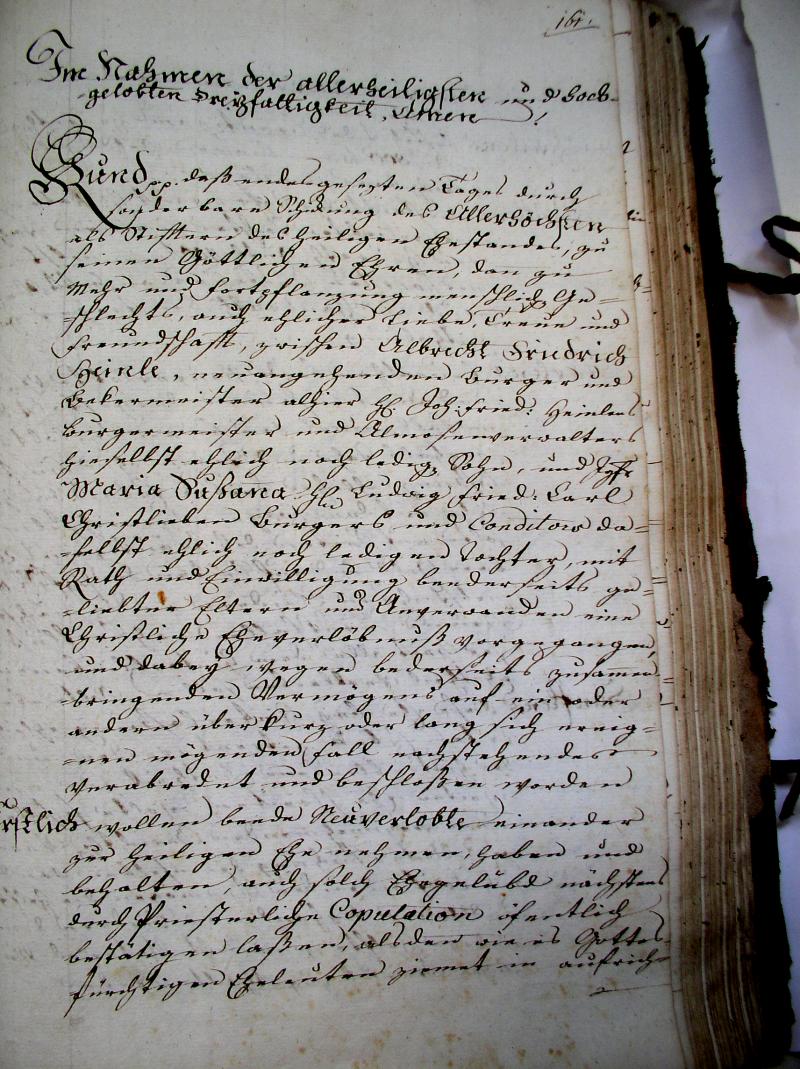 161.
Im Nahmen der allerheiligsten und hoch-
gelobten Dreyfaltigkeit, Amen!
Kund pp. daß endesgesezten Tages durch
sonderbare Schickung des Allerhöchsten
als Stifftern des heiligen Ehestandes, zu
seinen Göttlichen Ehren, dan zu
Mehr und Fortpflanzung menschlich Ge=
=schlechts, auch ehlicher Liebe, Treue und
Freundschafft, zwischen Albrecht Fridrich
Heinle, neuangehenden Burger und
Bekermeister alhier H. Joh: Fried: Heinlens
Burgermeister und Almosenverwalters
hieselbst ehlich noch ledig. Sohn, und
Maria Sußanna Hn Ludwig Fried: Carl
Christlieben Burgers und Conditors da=
=selbst ehlich noch ledigen Tochter, mit
Rath und Einwilligung beederseits ge=
=liebter Eltern und Anverwanden eine
Christliche Eheverlöbnuß vorgegangen,
und dabey wegen bederseits zusammen=
=bringenden Vermögens auf ein oder
andern über kurz oder lang sich ereig=
=nen mögenden Fall nachstehendes
verabredet und beschloßen worden
Erstlich wollen beede Neuverlobte einander
zur heiligen Ehe nehmen, haben und
behalten, auch solch Ehgelübd nächstens
durch Priesterliche Copulation öfentlich
bestätigen laßen, alsden wie es Gottes=
fürchtigen Eheleuten ziemet in aufrich=